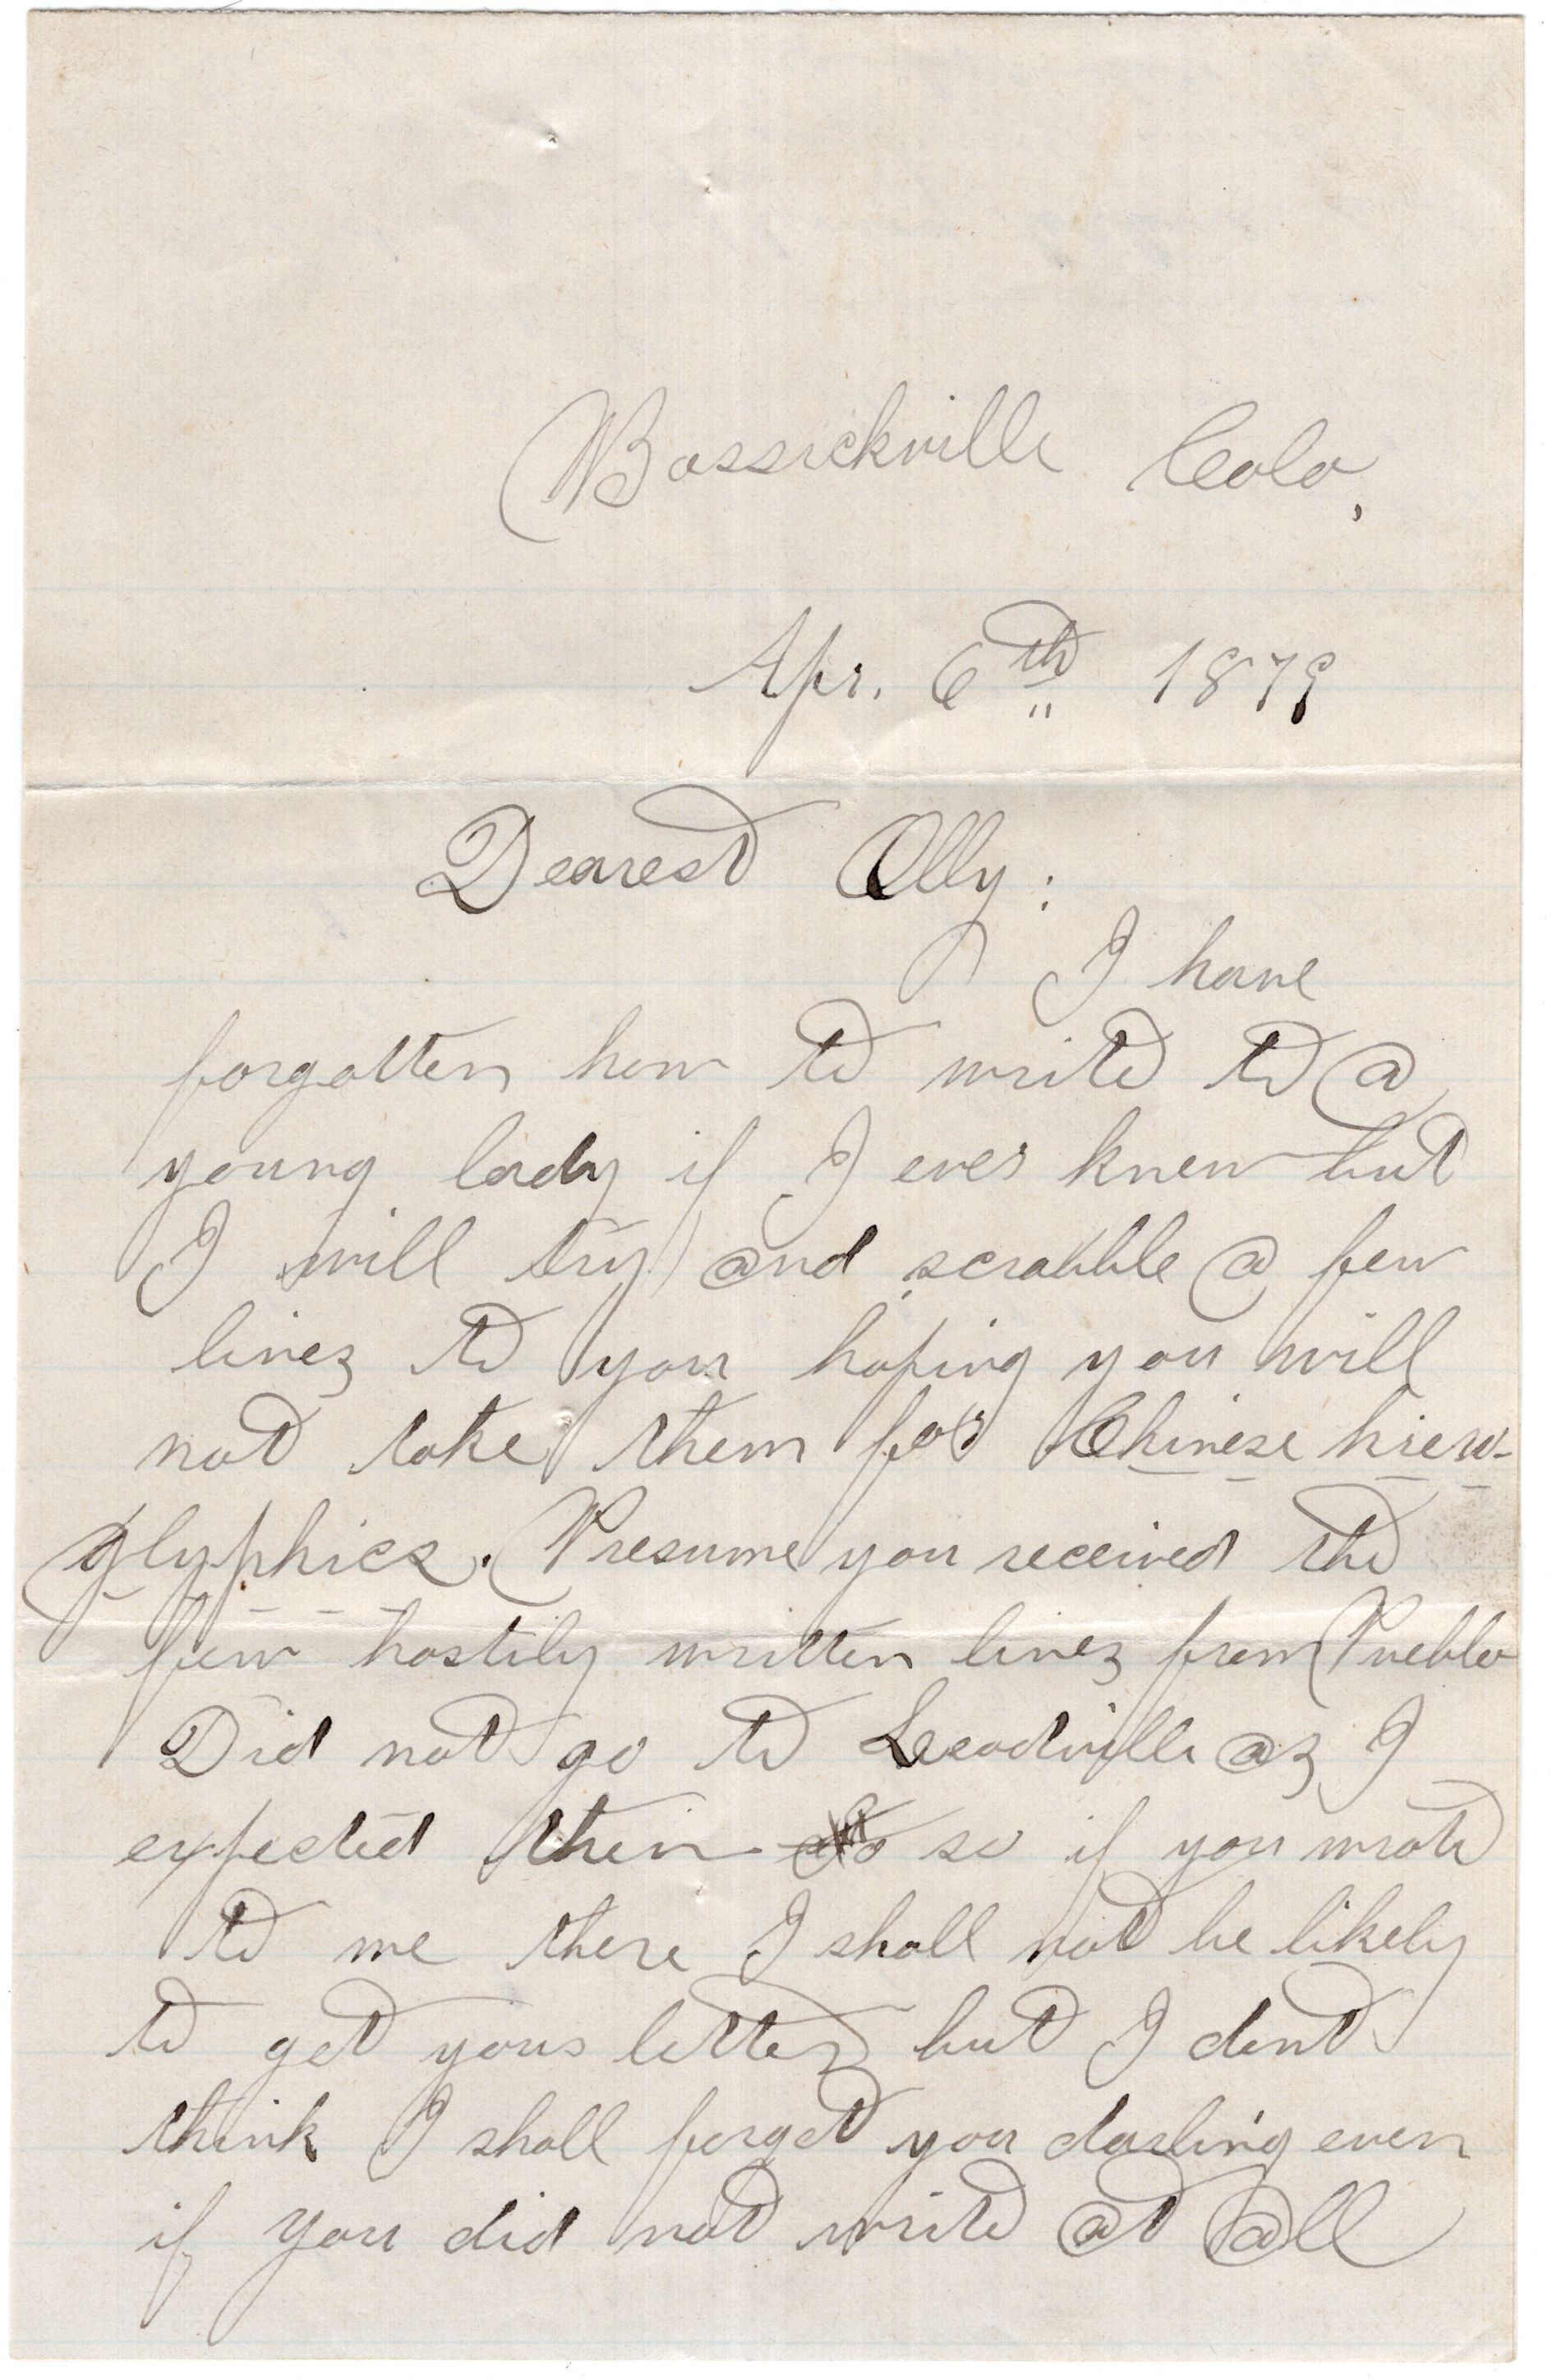 Bassickville Colo,
Apr. 6th 1879
Dearest Olly:
I have
forgotten how to write to a
young lady if I ever knew but
I will try and scrabble a few
lines to you hoping you will
not take them for Chinese hiero-
glyphics. Presume you received the
few hastily written lines from Pueblo
Did not go to Leadville as I
expected then so if you wrote
to me there I shall not be likely
to get your letter but I dont
think I shall forget you darling even
if you did not write at all